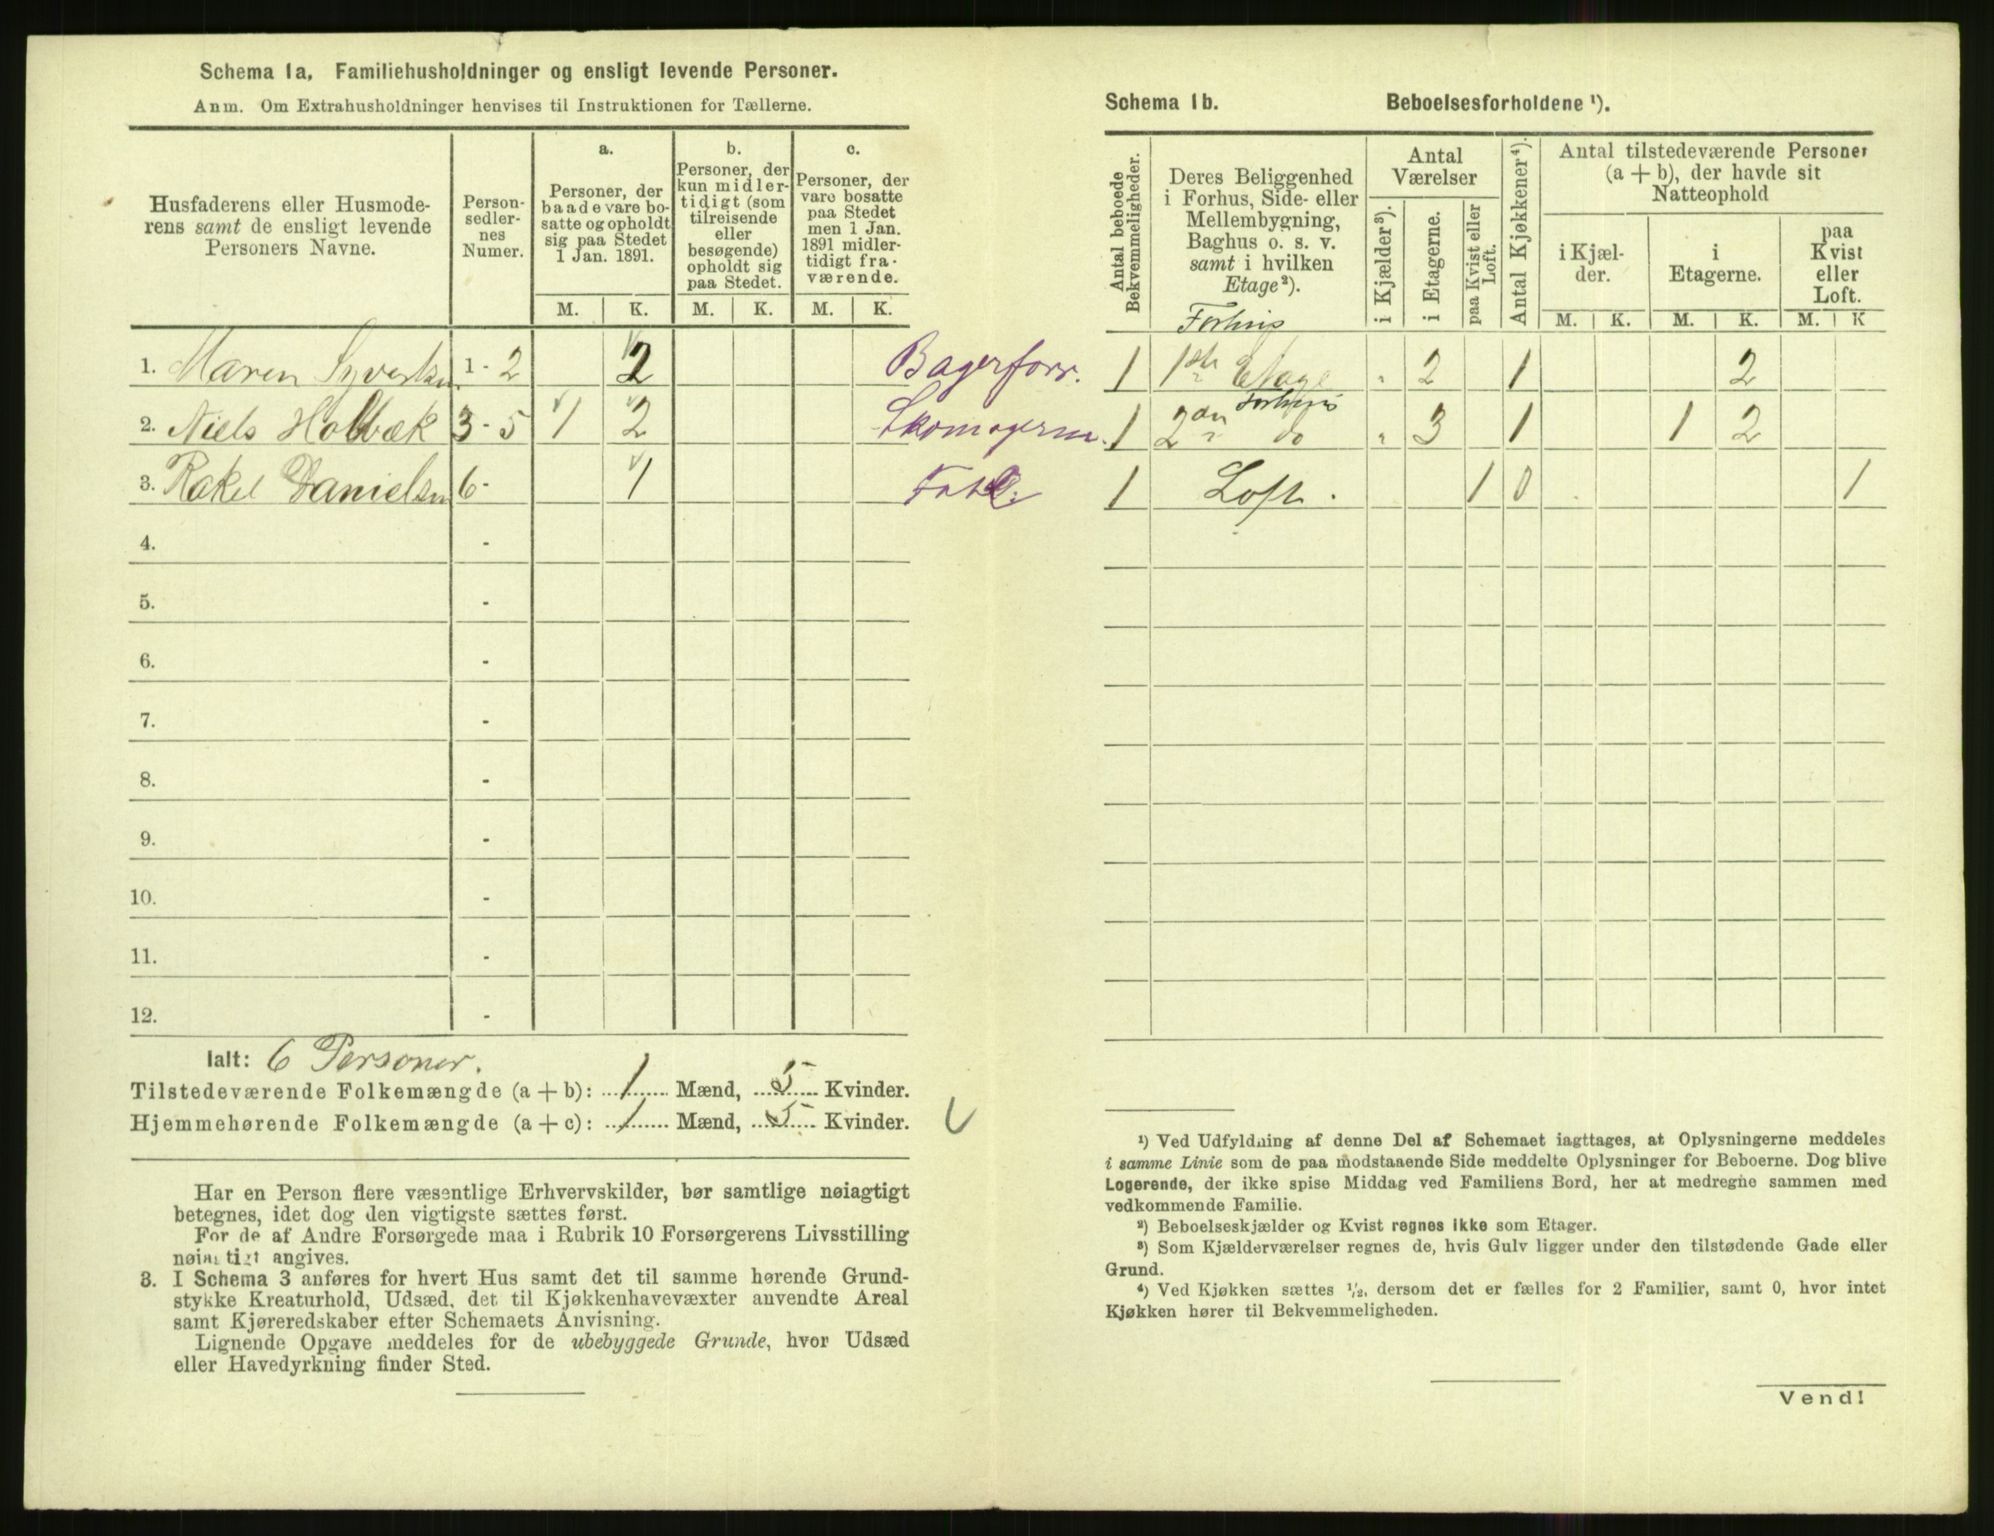 Schema 1a, Familiehusholdninger og ensligt levende Personer.
Anm. Om Extrahusholdninger henvises til Instruktionen for Tællerne.
Husfaderens eller Husmoderens samt de ensligt levende Personers Navne.
Personsedlernes Numer.
a.
Personer, der baade vare bosatte og opholdt sig paa Stedet 1 Jan. 1891.
b.
Personer, der kun midlertidigt (som tilreisende eller besøgende) opholdt sig paa Stedet.
c.
Personer, der vare bosatte paa Stedet men 1 Jan. 1891 midlertidigt fraværende.
M. K. M. K. M. K.
1. Maren Syvertsen 1 - 2 2 Bagerforr.
2. Niels Holbæk 3 - 5 1 2
3. Rakel Danielsen 6 - 1
4. -
5. -
6. -
7. -
8. -
9. -
10. -
11. -
12. -
Ialt: 6 Personer.
Tilstedeværende Folkemængde (a + b): 1 Mænd, 5 Kvinder.
Hjemmehørende Folkemængde (a + c): 1 Mænd, 5 Kvinder.
Har en Person flere væsentlige Erhvervskilder, bør samtlige nøiagtigt
betegnes, idet dog den vigtigste sættes først.
For de af Andre Forsørgede maa i Rubrik 10 Forsørgerens Livsstilling
nøiagtigt angives.
3. I Schema 3 anføres for hvert Hus samt det til samme hørende Grund-
stykke Kreaturhold, Udsæd, det til Kjøkkenhavevæxter anvendte Areal
samt Kjøreredskaber efter Schemaets Anvisning.
Lignende Opgave meddeles for de ubebyggede Grunde, hvor Udsæd
eller Havedyrkning finder Sted.
Schema 1b. Beboelsesforholdene ¹).
Antal beboede Bekvemmeligheder.
Deres Beliggenhed i Forhus, Side- eller Mellembygning, Baghus o. s. v. samt i hvilken Etage²).
Antal Værelser
i Kjælder³).
i Etagerne.
paa Kvist eller Loft.
Antal Kjøkkener⁴).
Antal tilstedeværende Personer (a + b), der havde sit Natteophold
i Kjælder.
i Etagerne.
paa Kvist eller Loft.
M. K. M. K. M. K
Forhus
1 1ste Etage " 2 1 2
Forhus
1 2den do " 3 1 1 2
1 Loft. 1 0 1
¹) Ved Udfyldning af denne Del af Schemaet iagttages, at Oplysningerne meddeles
i samme Linie som de paa modstaaende Side meddelte Oplysninger for Beboerne. Dog blive
Logerende, der ikke spise Middag ved Familiens Bord, her at medregne sammen med
vedkommende Familie.
²) Beboelseskjælder og Kvist regnes ikke som Etager.
³) Som Kjælderværelser regnes de, hvis Gulv ligger under den tilstødende Gade eller
Grund.
⁴) Ved Kjøkken sættes ½, dersom det er fælles for 2 Familier, samt 0, hvor intet
Kjøkken hører til Bekvemmeligheden.
Vend!